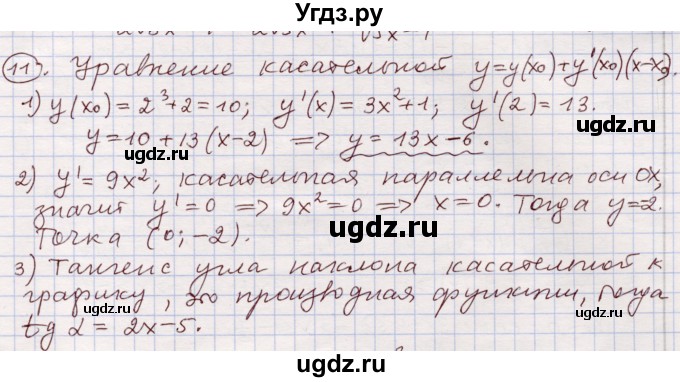 Угдз.ру
11). Уравнение касательной y=y(x₀)+y'(x₀)(x-x₀).
1) y(x₀) = 2³+2=10; y'(x) = 3x²+1; y'(2) = 13.
y = 10 + 13(x-2) => y = 13x-6.
2) y' = 9x²; касательная параллельна оси OX,
значит y'=0 => 9x²=0 => x=0. Тогда y=-2.
Точка (0; -2).
3) Тангенс угла наклона касательной к
графику, это производная функции, тогда
tg α = 2x-5.
ugdz.ru
ugdz.ru
ugdz.ru
ugdz.ru
ugdz.ru
ugdz.ru
ugdz.ru
ugdz.ru